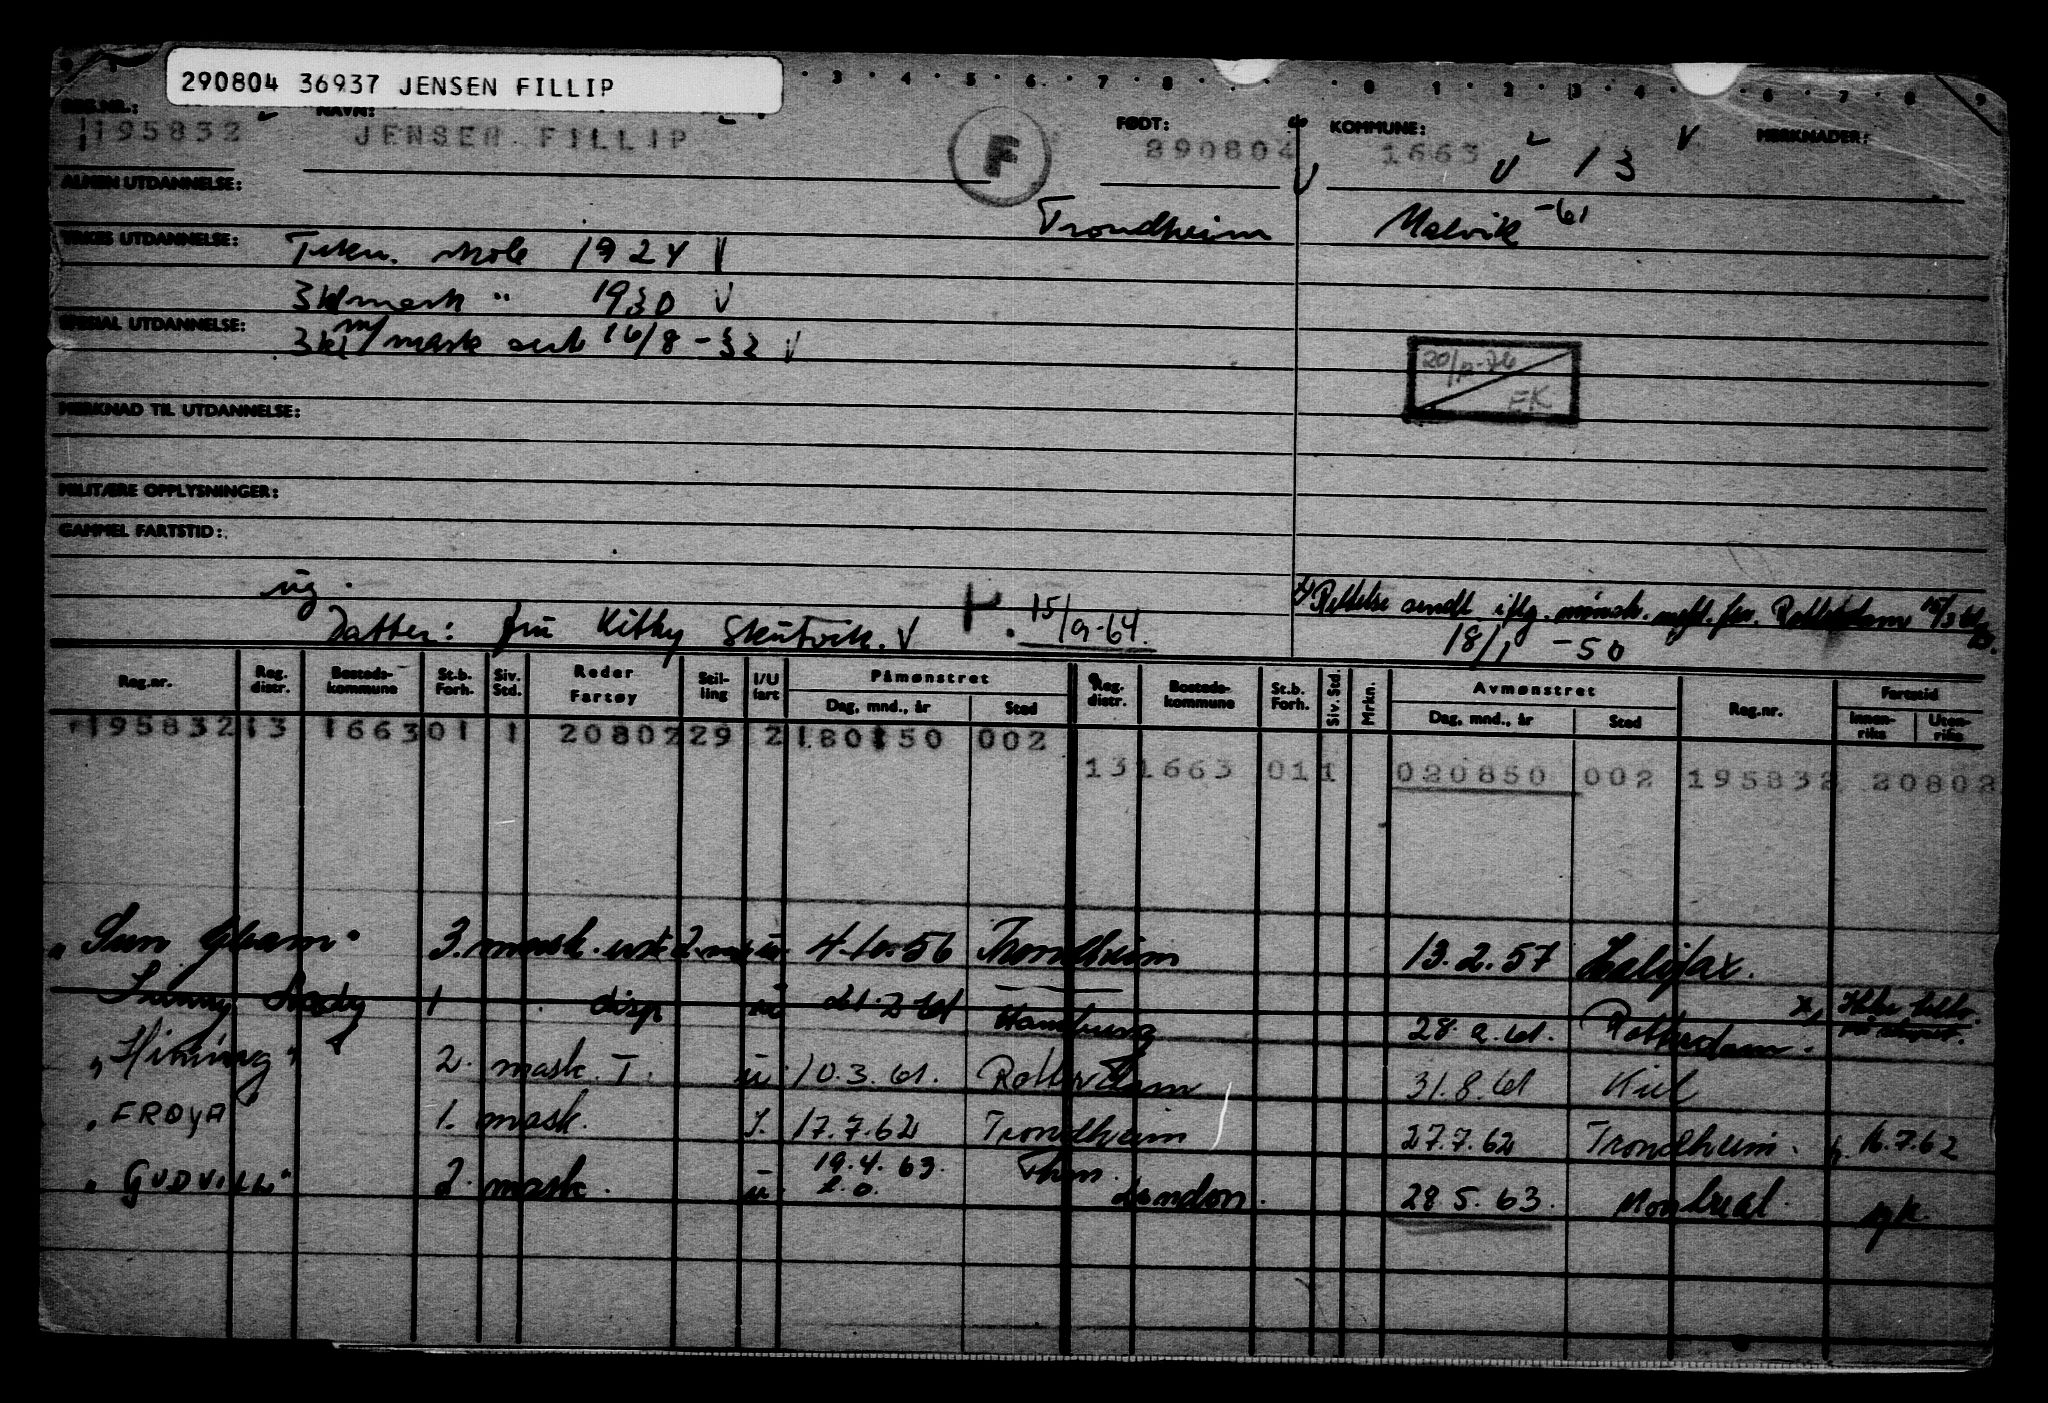 290804 36937 JENSEN FILLIP
REG.NR.: NAVN: FØDT: KOMMUNE: MERKNADER:
195832 JENSEN FILLIP F 290804 1663 13
ALMEN UTDANNELSE:
Trondheim Malvik -61
YRKES UTDANNELSE: Tekn. skole 1924
3 kl mask " 1930
SPESIAL UTDANNELSE: 3 kl m/ mask sert 16/8-32
EK
MERKNAD TIL UTDANNELSE:
MILITÆRE OPPLYSNINGER:
GAMMEL FARTSTID:
ug.
x) Rettelse sendt iflg. mønstr. Rotterdam
Datter: fru Kitty Skutvik. 15/9-64. 18/1 -50
Reg.nr. Reg. distr. Bosteds-kommune St.b. Forh. Siv. Std. Reder Fartøy Stil-ling I/U fart Påmønstret Dag, mnd., år Sted Reg. distr. Bosteds-kommune St.b. Forh. Siv. Std. Mrkn. Avmønstret Dag, mnd., år Sted Reg.nr. Fartstid Innen-riks Uten-riks
195832 13 1663 01 1 20802 29 2 180150 002
13 1663 01 1 020850 002 195832 20802
"Sun Gleam" 3. mask. 4.10.56 Trondheim 13.2.57 Halifax.
Sunny Lady 1 disp ü 21.2.61 Hamburg 28.2.61. Rotterdam. x) Ikke
"Hitting" 2. mask. I. ü 10.3.61. Rotterdam 31.8.61 Kiel
"FRØYA" 1. mask. I. 17.7.62 Trondheim 27.7.62 Trondheim. 16.7.62
"GUDVILL" 2. mask. ü 19.4.63. Thm. London. 28.5.63. Montreal. sjk.